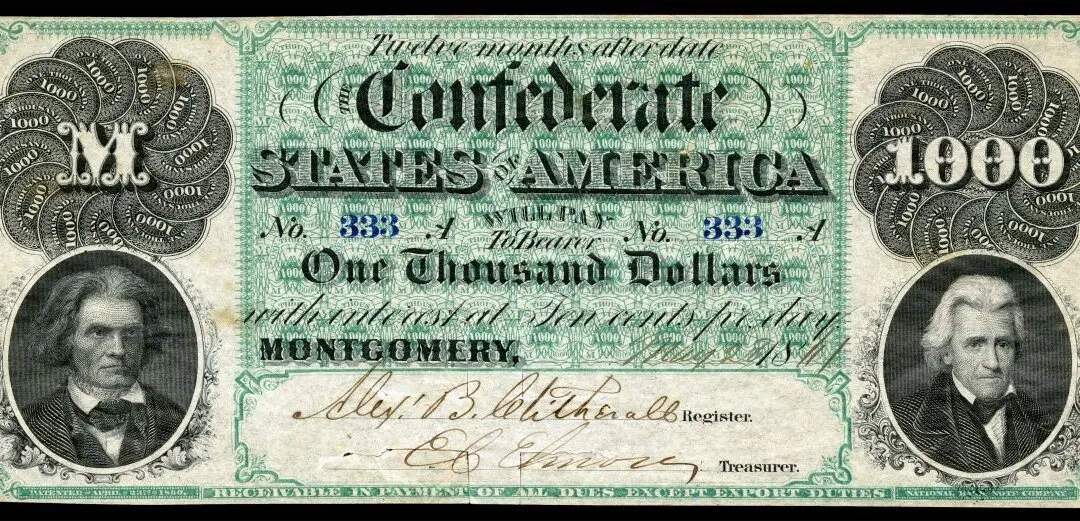 Twelve months after date
THE
Confederate
STATES OF AMERICA
M
1000
No. 333 A
WILL PAY
To Bearer
No. 333 A
One Thousand Dollars
with interest at Ten cents per day
MONTGOMERY,
Alex. B. Clitherall Register.
E C Elmore, Treasurer.
PATENTED APRIL 23RD 1860.
RECEIVABLE IN PAYMENT OF ALL DUES EXCEPT EXPORT DUTIES
NATIONAL BANK NOTE COMPANY